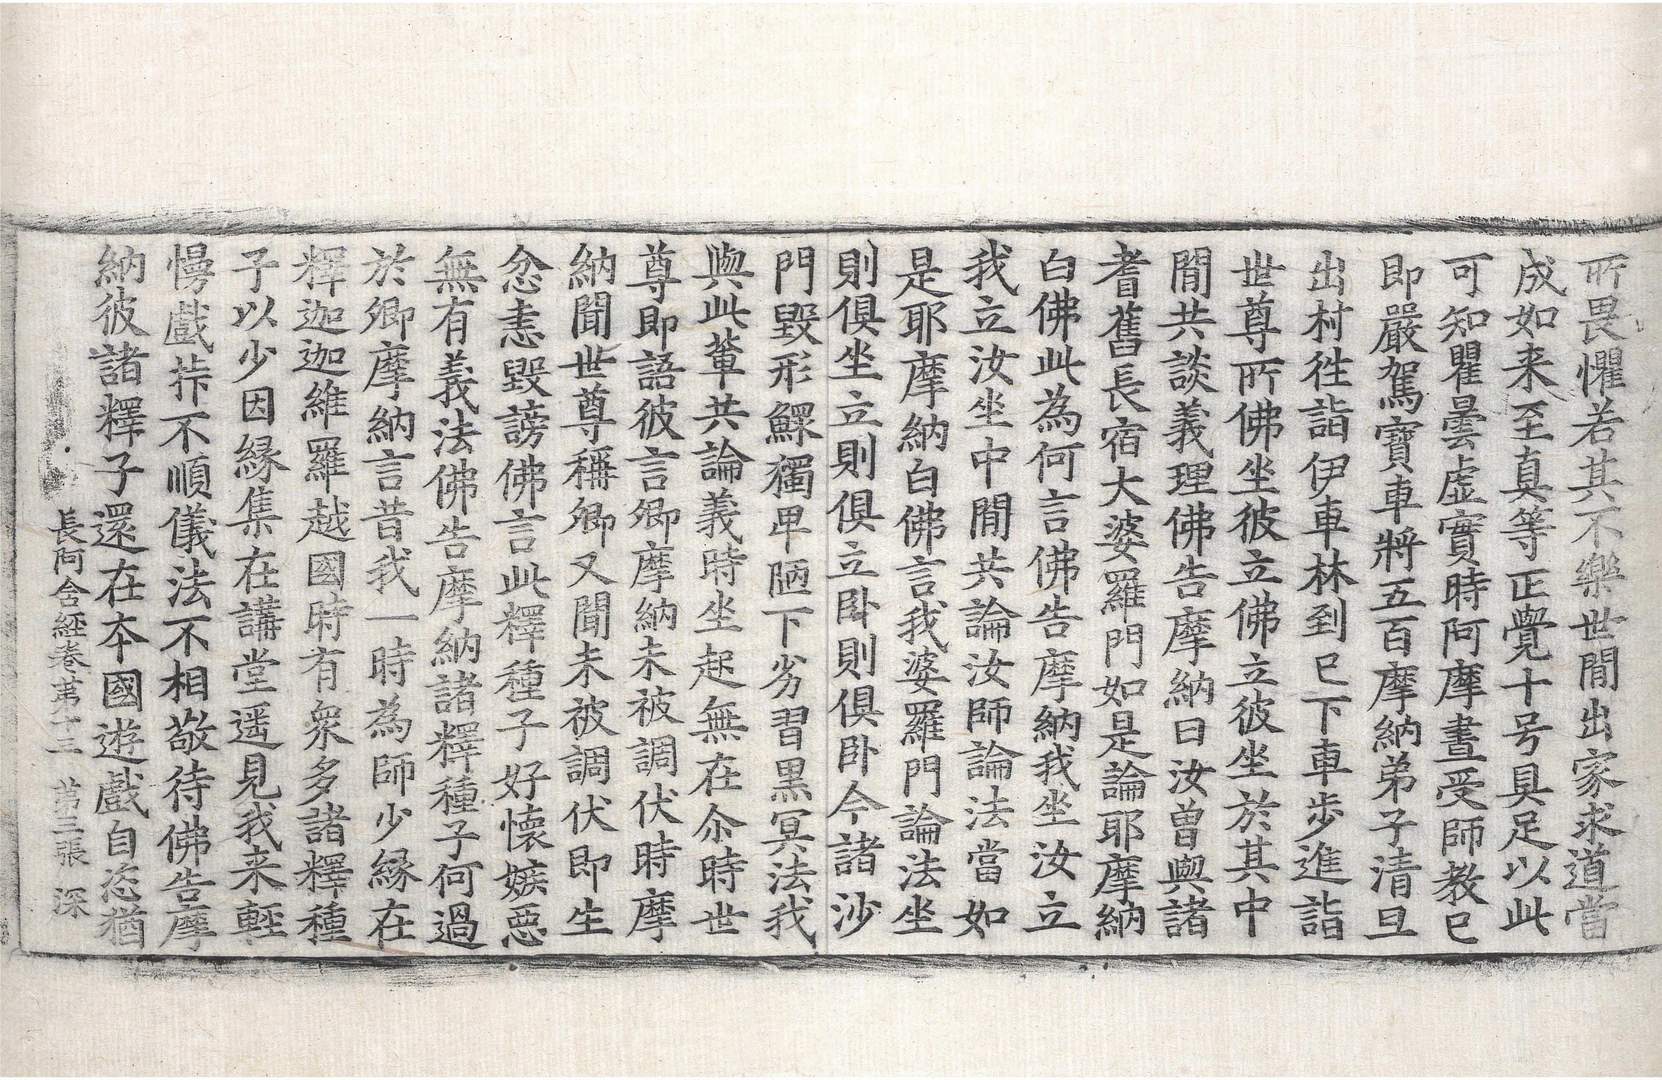 所畏懼若其不樂世閒出家求道當
成如来至真等正覺十号具足以此
可知瞿曇虛實時阿摩晝受師教已
即嚴駕寶車將五百摩納弟子清旦
出村徃詣伊車林到已下車步進詣
世尊所佛坐彼立佛立彼坐於其中
閒共談義理佛告摩納曰汝曾與諸
耆舊長宿大婆羅門如是論耶摩納
白佛此為何言佛告摩納我坐汝立
我立汝坐中閒共論汝師論法當如
是耶摩納白佛言我婆羅門論法坐
則俱坐立則俱立卧則俱卧今諸沙
門毀形鰥獨卑陋下劣習黒冥法我
與此輩共論義時坐起無在尒時世
尊即語彼言卿摩納未被調伏時摩
納聞世尊稱卿又聞未被調伏即生
忿恚毀謗佛言此釋種子好懷嫉惡
無有義法佛告摩納諸釋種子何過
於卿摩納言昔我一時為師少緣在
釋迦迦維羅越國時有衆多諸釋種
子以少因緣集在講堂遥見我来輕
慢戲𢍆不順儀法不相敬待佛告摩
納彼諸釋子還在本國遊戲自恣猶
長阿含經卷第十三　第三張　深